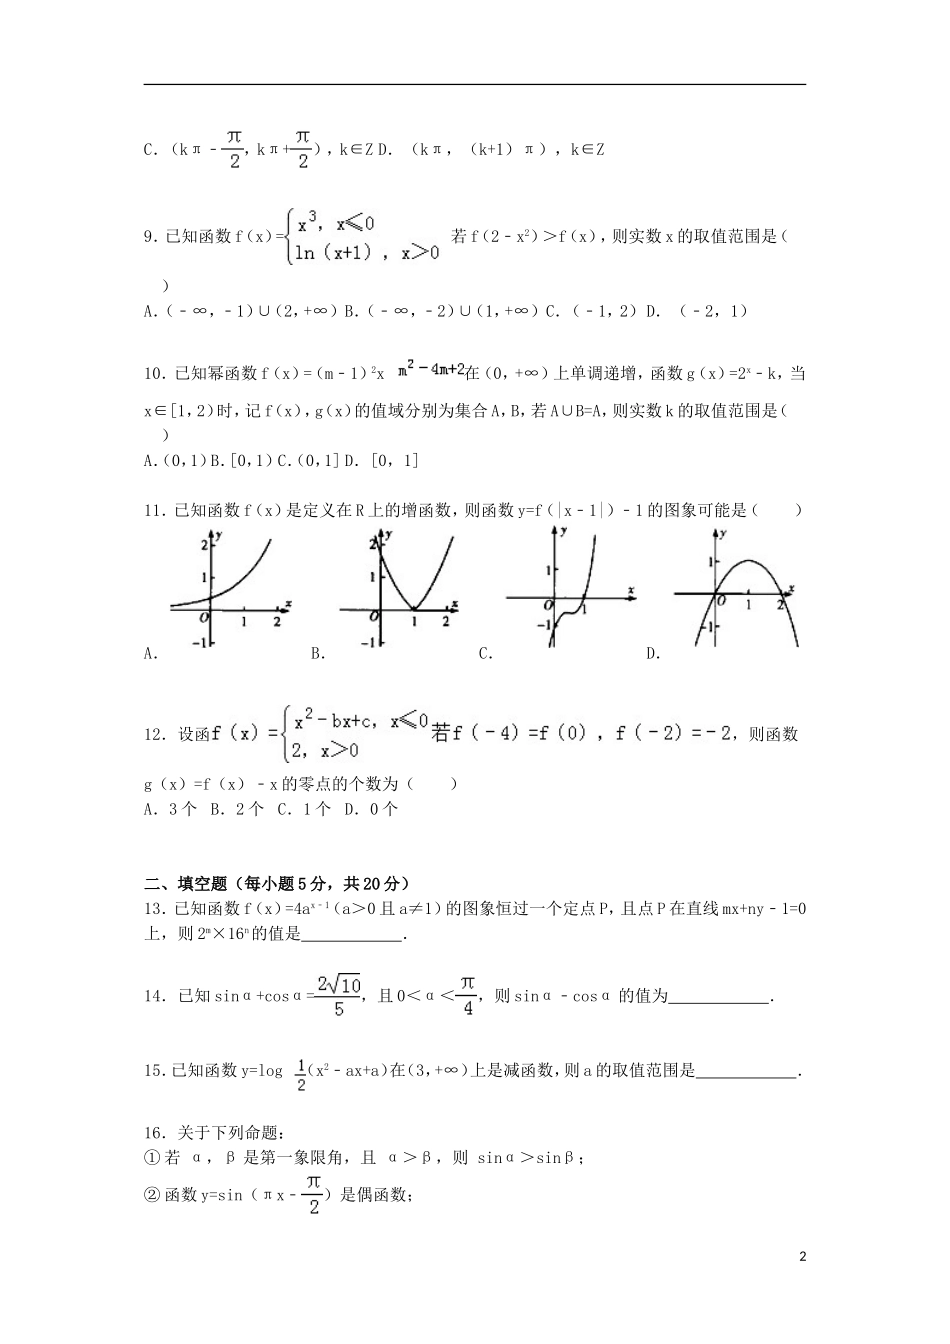 C．（kπ﹣π/2，kπ+π/2），k∈Z D．（kπ，（k+1）π），k∈Z
9．已知函数 f（x）={x³，x≤0 ln（x+1），x＞0 若 f（2﹣x²）＞f（x），则实数 x 的取值范围是（
）
A．（﹣∞，﹣1）∪（2，+∞）B．（﹣∞，﹣2）∪（1，+∞）C．（﹣1，2）D．（﹣2，1）
10．已知幂函数 f（x）=（m﹣1）²x m²﹣4m+2在（0，+∞）上单调递增，函数 g（x）=2ˣ﹣k，当
x∈[1，2）时，记 f（x），g（x）的值域分别为集合 A，B，若 A∪B=A，则实数 k 的取值范围是（
）
A．（0，1）B．[0，1）C．（0，1] D．[0，1]
11．已知函数 f（x）是定义在 R 上的增函数，则函数 y=f（|x﹣1|）﹣1 的图象可能是（ ）
A． B． C． D．
12．设函f（x）={x²﹣bx+c，x≤0 2，x＞0 若f（﹣4）=f（0），f（﹣2）=﹣2，则函数
g（x）=f（x）﹣x 的零点的个数为（ ）
A．3 个 B．2 个 C．1 个 D．0 个
二、填空题（每小题 5 分，共 20 分）
13．已知函数 f（x）=4aˣ⁻¹（a＞0 且 a≠1）的图象恒过一个定点 P，且点 P 在直线 mx+ny﹣1=0
上，则 2ᵐ×16ⁿ的值是 ．
14．已知 sinα+cosα=2√10/5，且 0＜α＜π/4，则 sinα﹣cosα 的值为 ．
15．已知函数 y=log 1/2（x²﹣ax+a）在（3，+∞）上是减函数，则 a 的取值范围是 ．
16．关于下列命题：
①若 α，β 是第一象限角，且 α＞β，则 sinα＞sinβ；
②函数 y=sin（πx﹣π/2）是偶函数；
2